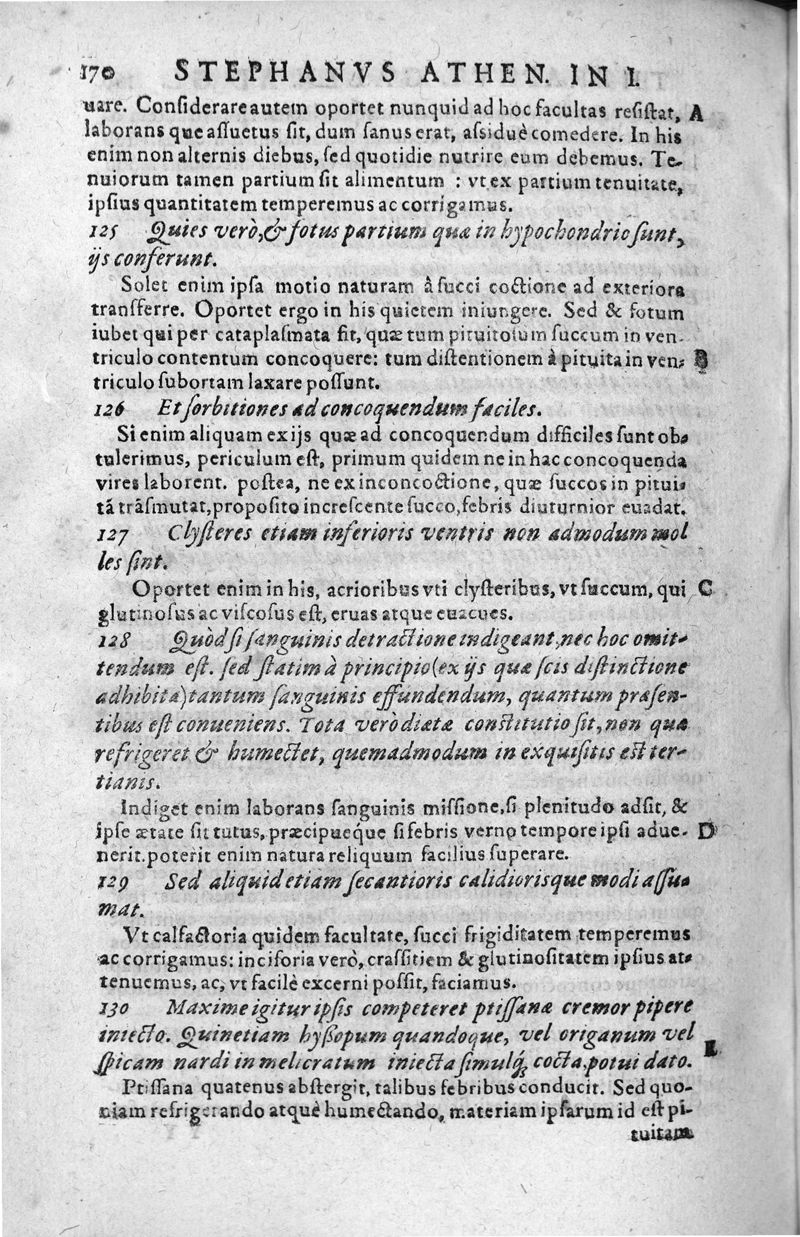 170 STEPHANVS ATHEN. IN I.
uare. Conſiderare autem oportet nunquid ad hoc facultas reſiſtat, A
laborans que aſſuetus ſit, dum ſanus erat, aſsiduè comedere. In his
enim non alternis diebus, ſed quotidie nutrire eum debemus. Te-
nuiorum tamen partium ſit alimentum : vt ex partium tenuitate,
ipſius quantitatem temperemus ac corrigamus.
125 Quies verò, & fotus partium quæ in hypochondrio ſunt,
ijs conferunt.
Solet enim ipſa motio naturam à ſucci coctione ad exteriora
transferre. Oportet ergo in his quietem iniungere. Sed & fotum
iubet qui per cataplaſmata fit, quæ tum pituitoſum ſuccum in ven-
triculo contentum concoquere: tum diſtentionem à pituita in ven- B
triculo ſubortam laxare poſſunt.
126 Et ſorbitiones ad concoquendum faciles.
Si enim aliquam ex ijs quæ ad concoquendum difficiles ſunt ob-
tulerimus, periculum eſt, primum quidem ne in hac concoquenda
vires laborent. poſtea, ne ex inconcoctione, quæ ſuccos in pitui-
tā trāſmutat, propoſito increſcente ſucco, febris diuturnior euadat.
127 Clyſteres etiam inferioris ventris non admodum mol
les ſint.
Oportet enim in his, acrioribus vti clyſteribus, vt ſuccum, qui C
glutinoſus ac viſcoſus eſt, eruas atque euacues.
128 Quòd ſi ſanguinis detractione indigeant, nec hoc omit-
tendum eſt. ſed ſtatim à principio (ex ijs quæ ſcis diſtinctione
adhibita) tantum ſanguinis effundendum, quantum præſen-
tibus eſt conueniens. Tota verò diæta conſtitutio ſit, non quæ
refrigeret & humectet, quemadmodum in exquiſitis eſt ter-
tianis.
Indiget enim laborans ſanguinis miſſione, ſi plenitudo adſit, &
ipſe ætate ſit tutus, præcipueq́ue ſi febris verno tempore ipſi adue- D
nerit. poterit enim natura reliquum facilius ſuperare.
129 Sed aliquid etiam ſecantioris calidiorisque modi aſſu
mat.
Vt calfactoria quidem facultate, ſucci frigiditatem temperemus
ac corrigamus: inciſoria verò, craſſitiem & glutinoſitatem ipſius at-
tenuemus, ac, vt facilè excerni poſſit, faciamus.
130 Maxime igitur ipſis competeret ptiſſanæ cremor pipere
iniecto. Quinetiam hyßopum quandoque, vel origanum vel
ſpicam nardi in melicratum iniecta ſimulq́; cocta, potui dato. E
Ptiſſana quatenus abſtergit, talibus febribus conducit. Sed quo-
niam refrigerando atquè humectando, materiam ipſarum id eſt pi-
tuitam